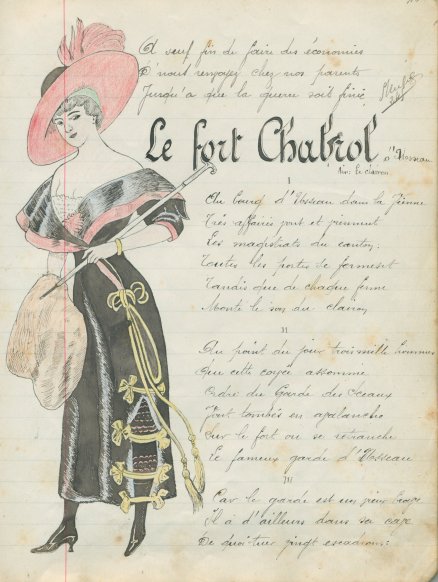 A seul fin de faire des économies
D'nous renvoyer chez nos parents
Jusqu'à que la guerre soit finie
Le fort Chabrol à Usseau
Air: le clairon
I
Au bourg d'Usseau dans la Vienne
Très affairés vont et viennent
Les magistrats du canton;
Toutes les portes se ferment
Tandis que de chaque ferme
Monte le son du clairon
II
Au point du jour trois mille hommes
Que cette corvée assomme
Ordre du Garde des Sceaux
Sont tombés en avalanche
Sur le fort ou se retranche
Le fameux garde d'Usseau
III
Car le garde est un vieux brave
Il a d'ailleurs dans sa cave
De quoi tuer vingt escadrons;